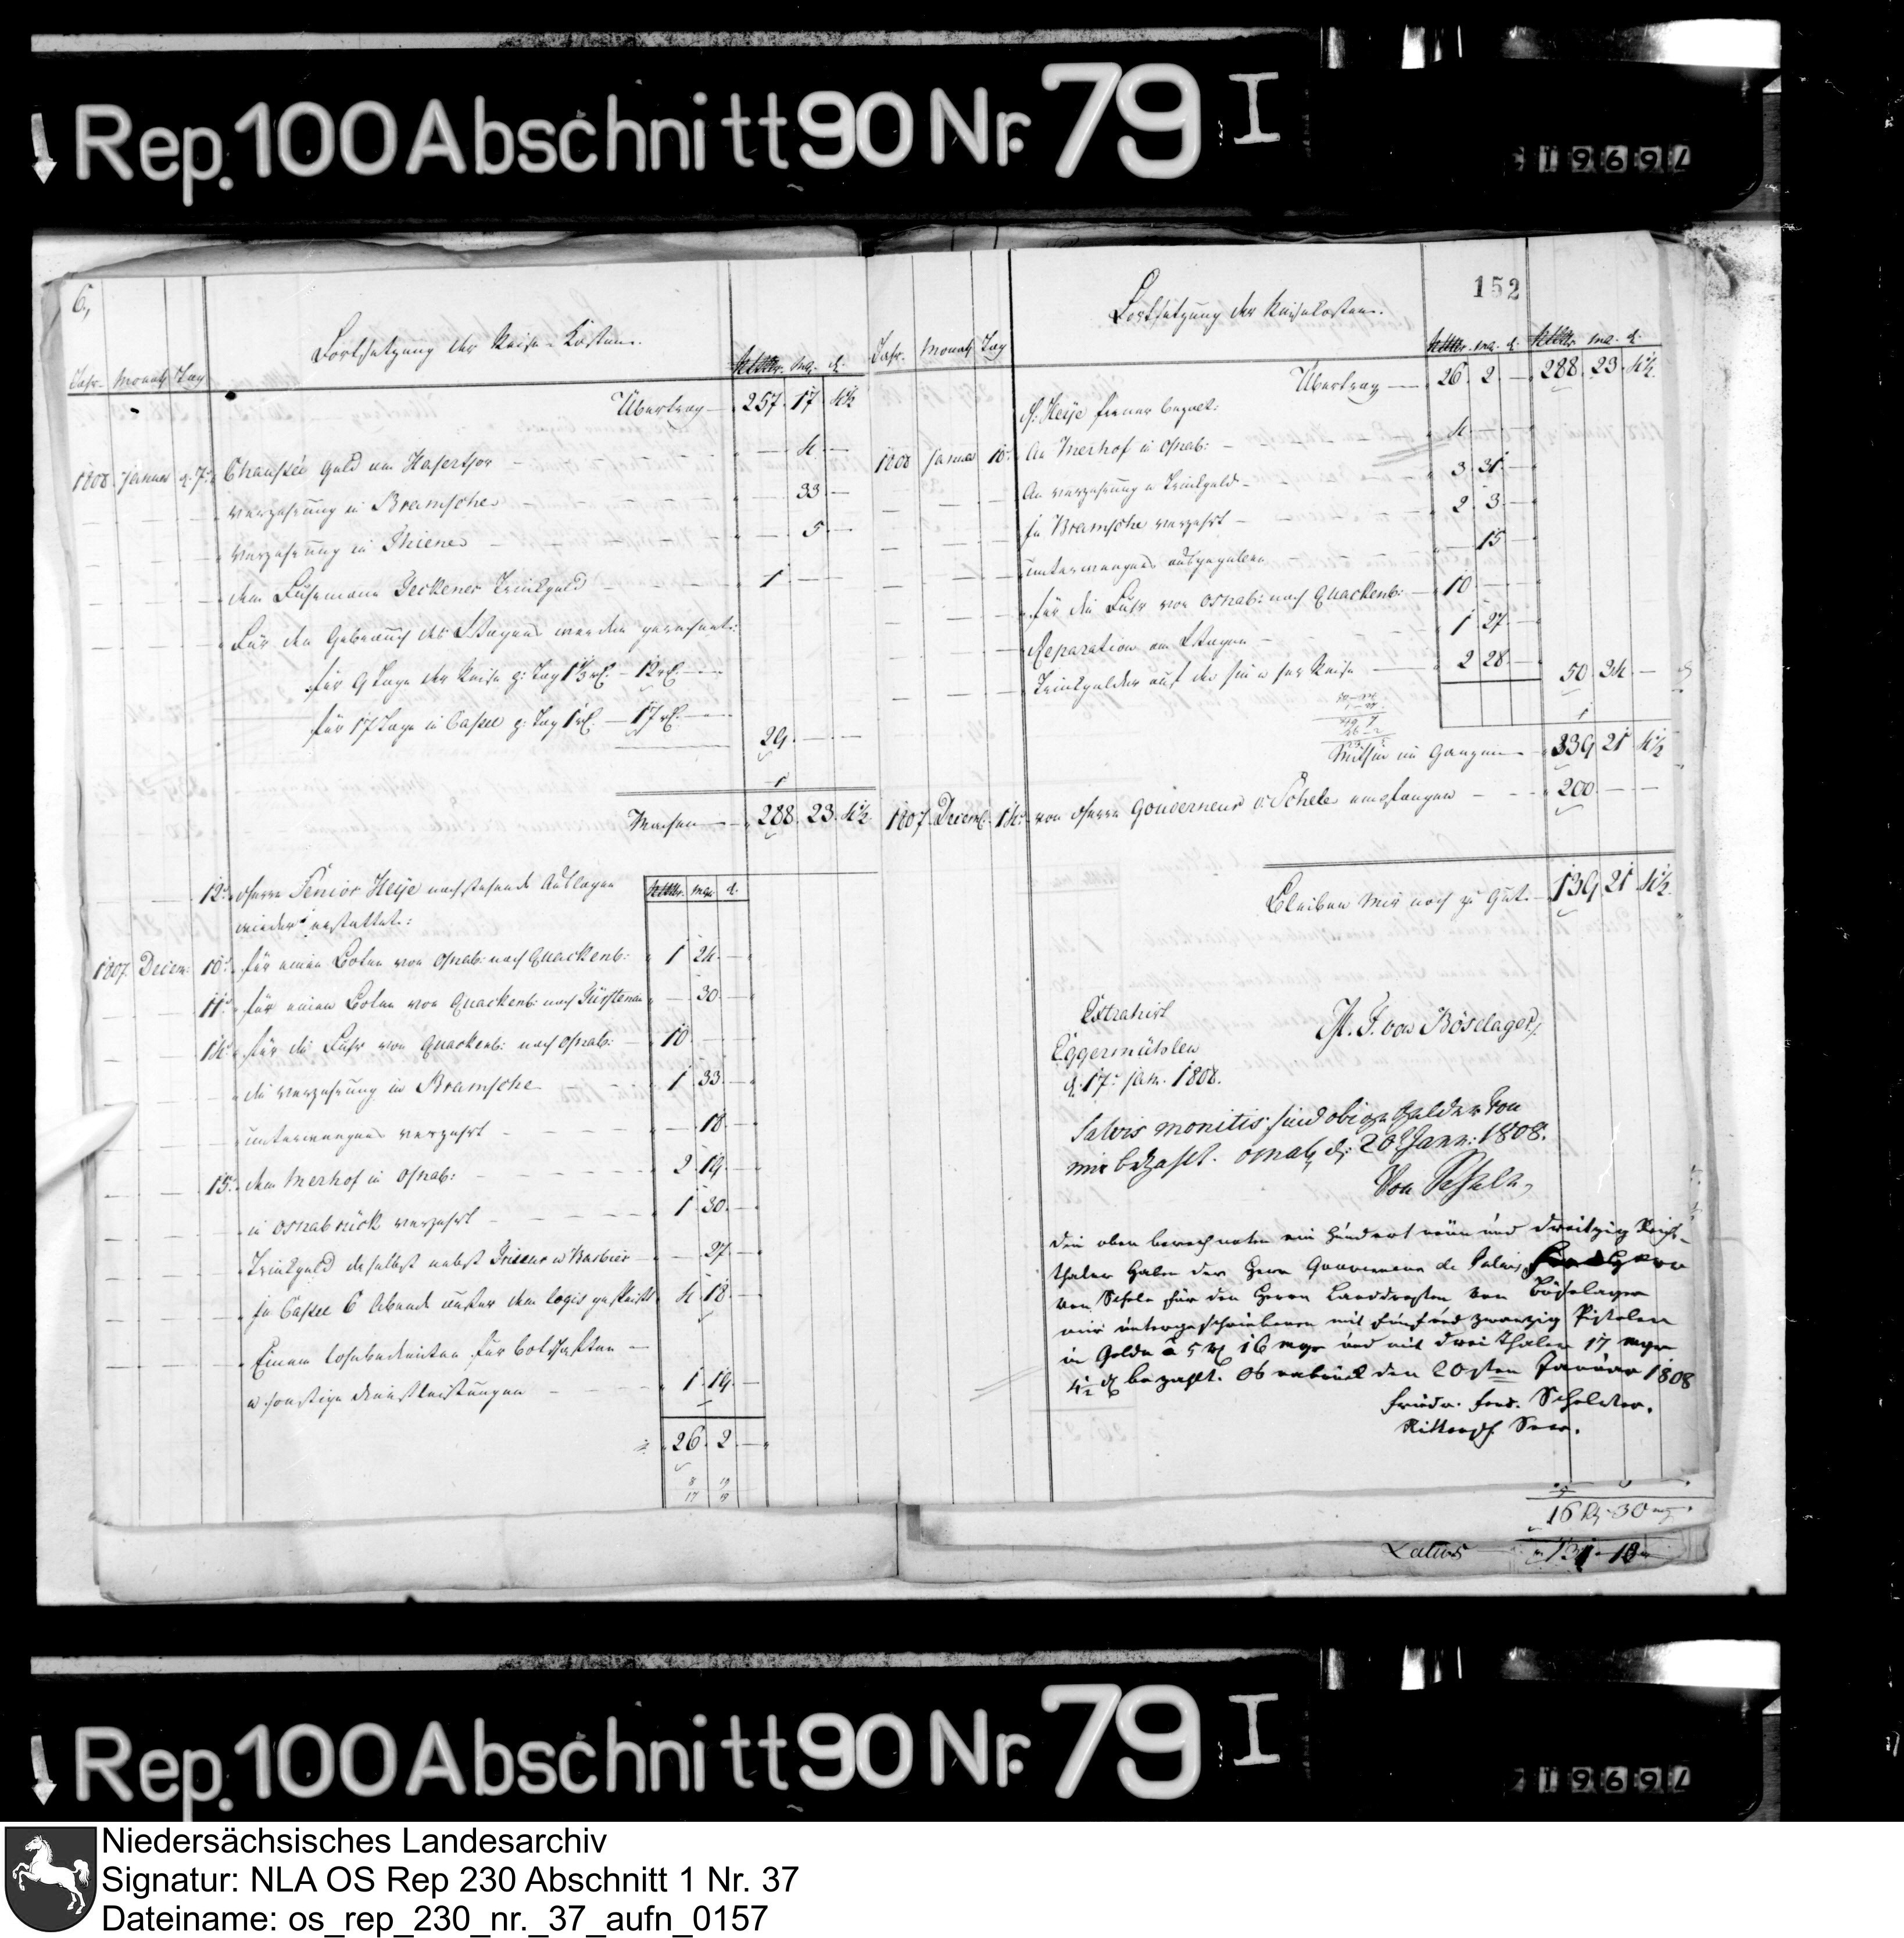 Rep. 100 Abschnitt 90 Nr. 79 I
6,
Fortsetzung der Reise-Kosten.
Jahr. Monath Tag Rthlr. mg. d.
Übertrag — 257. 17 4½
1808. Januar d. 7t. Chaussée Geld am Hasenthor — 4. —
Verzehrung in Bramsche — 33 —
Verzehrung in Thiene — 5. —
dem Fuhrmann Trinkgeld — 1 — —
Für den Gebrauch des Wagens werden gerechnet:
für 9 Tage der Reise p. Tag 1⅓ rl. — 12 rl. —
für 17 Tage in Cassel p. Tag 1 rl. — 17 rl. —
29. — —
Machen — 288. 23. 4½
12t. Herrn Senior Heije nachstehende Auslagen
wieder erstattet:
Rthlr. mgr. d.
1807. Decem. 10t. für einen Boten von Osnab: nach Quackenb: 1 24. —
11t. für einen Boten von Quackenb: nach Fürstenau — 30. —
14t. für die Fuhr von Quackenb: nach Osnab: 10. — —
die Verzehrung in Bramsche 1 33. —
unterweges verzehrt — 18. —
15t. dem Merhof in Osnab: 2 19. —
in Osnabrück verzehrt 1 30. —
Trinkgeld daselbst nebst Friseur u Barbier — 27. —
In Cassel 6 Abends außer dem Logis gespeist 4 18. —
Einem Lohnbedienten für Botschaften —
u sonstige Dienstleistungen 1. 19. —
26. 2. —
152
Fortsetzung der Reisekosten.
Jahr. Monath Tag Rthlr. mg. d. Rthlr. mg. d.
Übertrag — 26. 2. — 288. 23. 4½.
H. Heije ferner bezalt:
1808 Januar 10t. An Merhof in Osnab: — 4. —
An Verzehrung u Trinkgeld — 3. 31. —
In Bramsche verzehrt — 2. 3. —
unterweges ausgegeben — 15 —
für die Fuhr von Osnab: nach Quackenb: — 10 — —
Reparation am Wagen — 1 27 —
Trinkgelder auf der hin u her Reise — 2 28 — 50. 34. —
Mithin im Ganzen — 339 21 4½
1807. Decemb. 14t. von Herrn Gouverneur v. Schele empfangen — 200 — —
Bleiben mir noch zu Gut. — 139 21 4½.
Extrahirt
Eggermühlen
d. 17t. Jan. 1808.
F. von Böselager
Salvis monitis sind obige Gelder von
mir bezahlt. Osnab. d. 20t Janr: 1808.
Von Schele
Die oben berechneten ein hundert neun und dreitzig Reichs-
thaler haben der Herr Gouverneur de Palais
von Schele für den Herrn Landdrosten von Böselager
mir unterschriebenen mit fünf und zwanzig Pistolen
in Golde à 5 rl 16 mgr und mit drei Thaler 17 mgr
4½ d bezahlt. Osnabrück den 20sten Januar 1808
Friedr. Ferd. Schelver.
Rittersch. Secr.
16 rl. 30 mg.
Latus
Rep. 100 Abschnitt 90 Nr. 79 I
Niedersächsisches Landesarchiv
Signatur: NLA OS Rep 230 Abschnitt 1 Nr. 37
Dateiname: os_rep_230_nr._37_aufn_0157